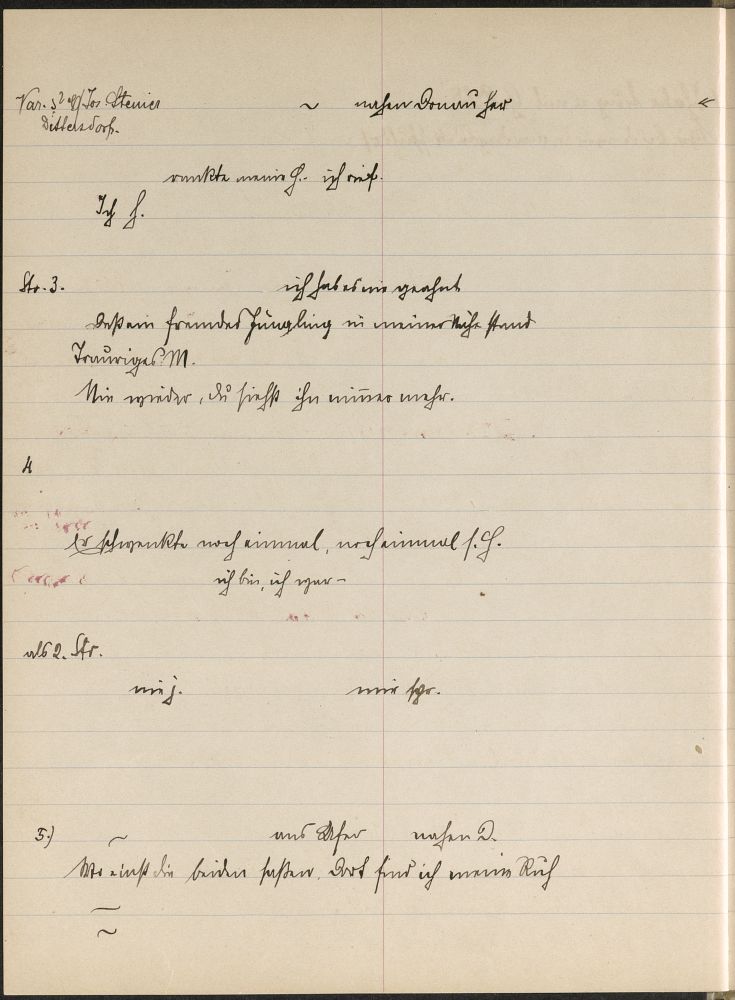 Var. s² v/ Jos. Steiner ~ nahen Donau her «
Dittersdorf.
rankte meine H. ich rief.
Ich h.
Str. 3. ich hab es nie geahnt
Daß ein fremder Jüngling in meiner Nähe stand
Trauriges M.
Nie wieder, du siehst ihn nimmer mehr.
4
Er schwenkte noch einmal, noch einmal s. H.
ich bin, ich war –
als 2. Str.
nie j. mir spr.
5.) ~ ans Ufer nahen D.
Wo einst die beiden saßen, dort find ich meine Ruh
—
~